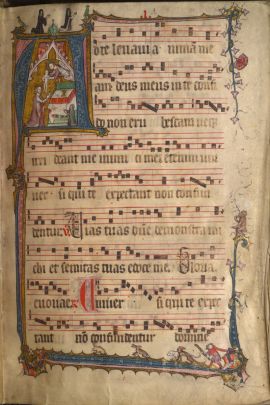 Ad te leuaui a nimā me
am deus meus in te confi
do non eru bescam neq
irri deant me inimi ci mei etenim uni
uer si qui te expectant non confun
dentur Uias tuas dñe demonstra mi
chi et semitas tuas edoce me. Gloria
euouae Uniuer si qui te expec
tant nō confundentur domine